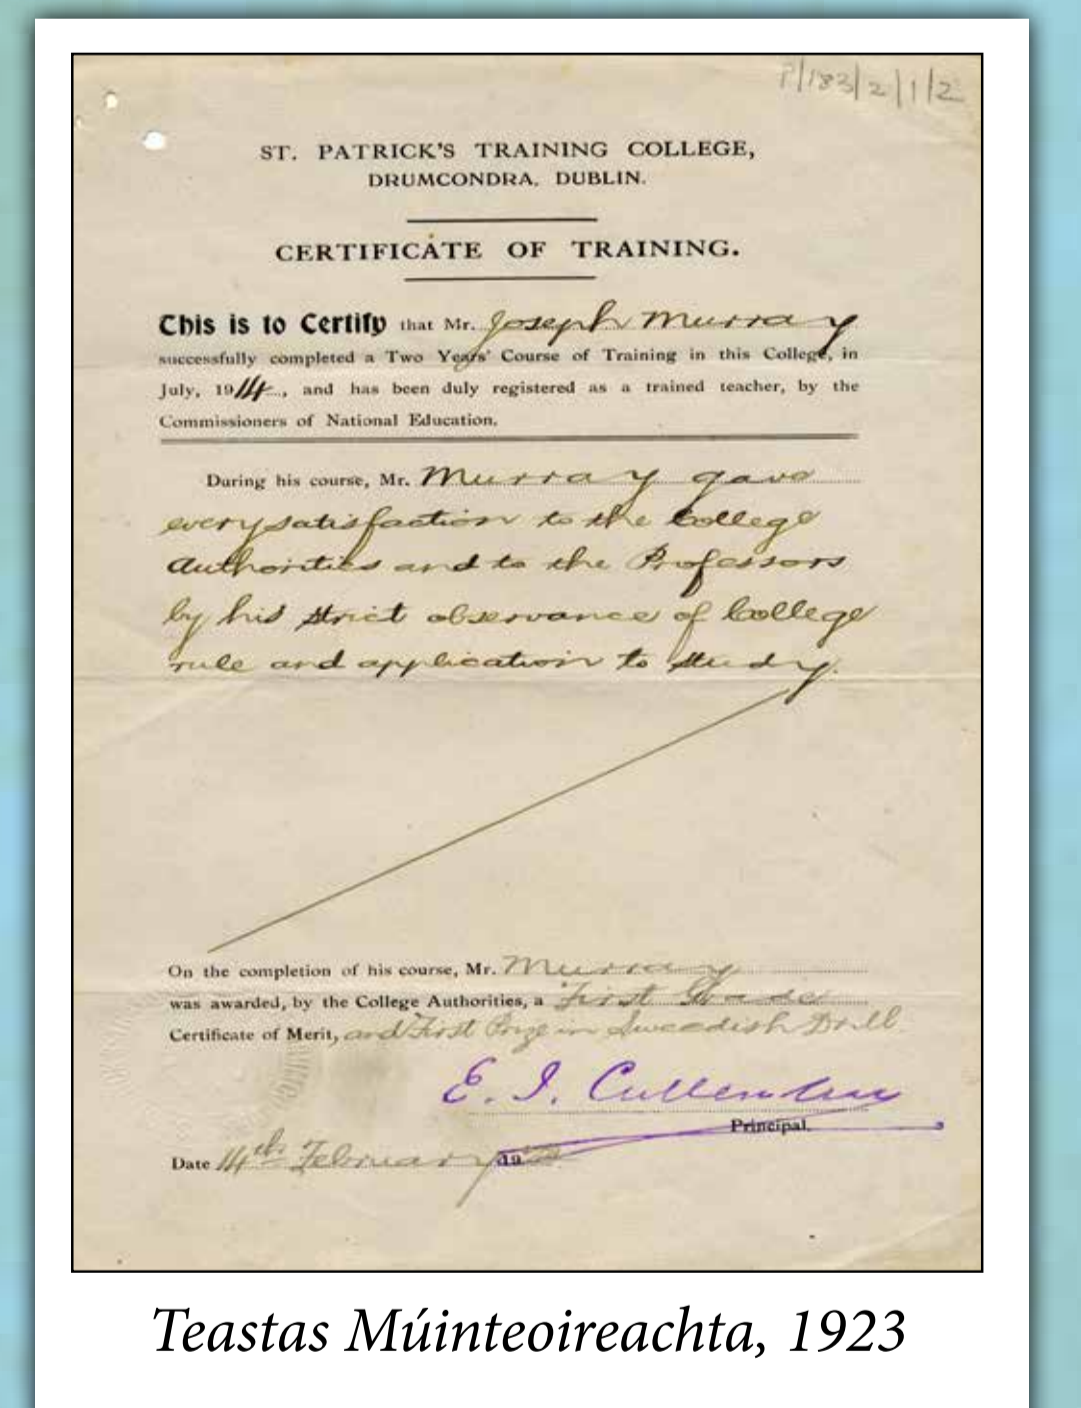 P/183/2/1/2
ST. PATRICK'S TRAINING COLLEGE,
DRUMCONDRA, DUBLIN.
CERTIFICATE OF TRAINING.
This is to Certify that Mr. Joseph Murray
successfully completed a Two Years' Course of Training in this College, in
July, 1914, and has been duly registered as a trained teacher, by the
Commissioners of National Education.
During his course, Mr. Murray gave
every satisfaction to the College
Authorities and to the Professors
by his strict observance of College
rule and application to study.
On the completion of his course, Mr. Murray
was awarded, by the College Authorities, a First Grade
Certificate of Merit, and First Prize in Sweedish Drill.
E. J. Cullen
Principal.
Date 14th February 19
Teastas Múinteoireachta, 1923